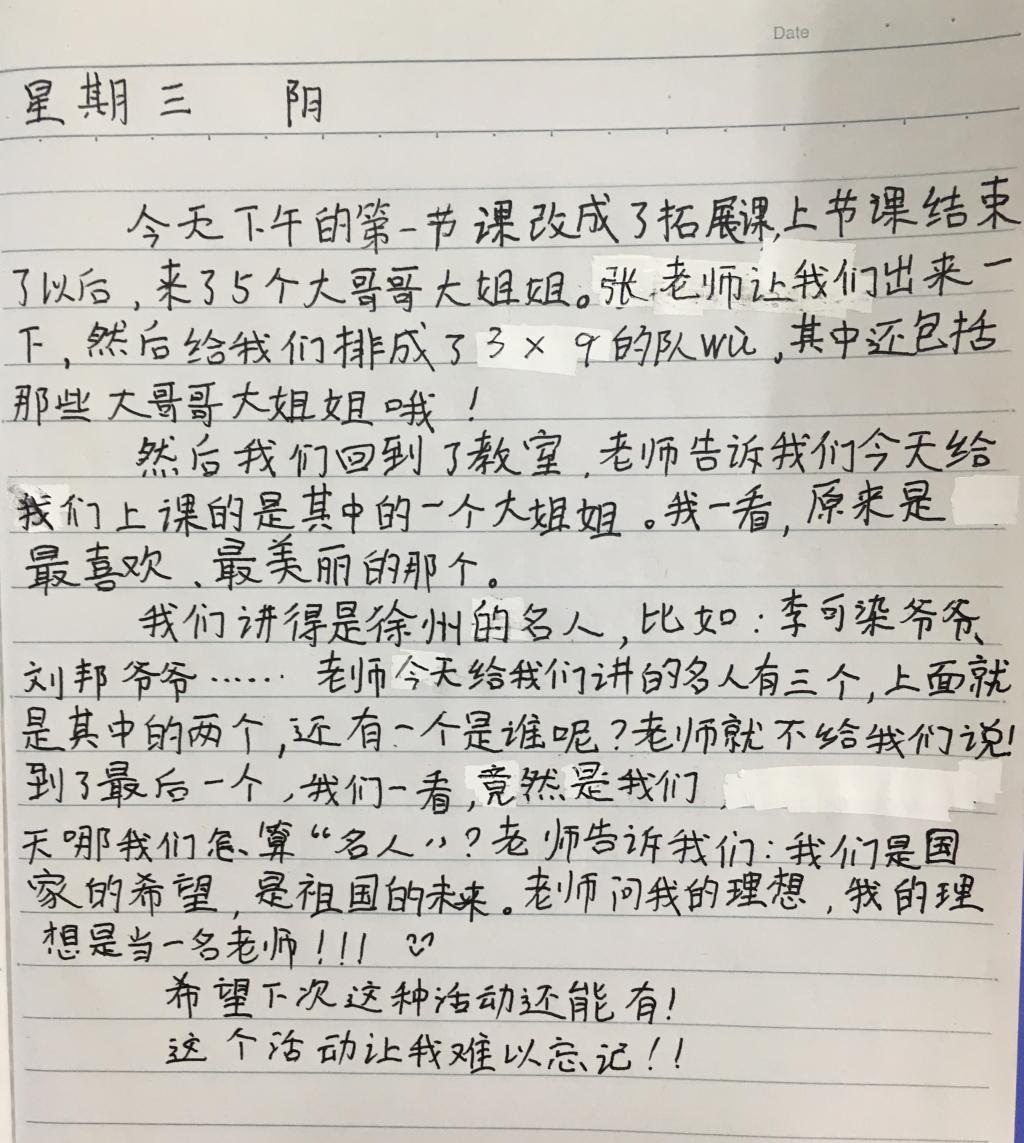 Date
星期三 阴
今天下午的第一节课改成了拓展课,上节课结束
了以后,来了5个大哥哥大姐姐。张老师让我们出来一
下,然后给我们排成了3×9的队wǔ,其中还包括
那些大哥哥大姐姐哦!
然后我们回到了教室,老师告诉我们今天给
我们上课的是其中的一个大姐姐。我一看,原来是
最喜欢、最美丽的那个。
我们讲得是徐州的名人,比如:李可染爷爷、
刘邦爷爷…… 老师今天给我们讲的名人有三个,上面就
是其中的两个,还有一个是谁呢?老师就不给我们说!
到了最后一个,我们一看,竟然是我们,
天哪我们怎么算“名人”?老师告诉我们:我们是国
家的希望,是祖国的未来。老师问我的理想,我的理
想是当一名老师!!!
希望下次这种活动还能有!
这个活动让我难以忘记!!